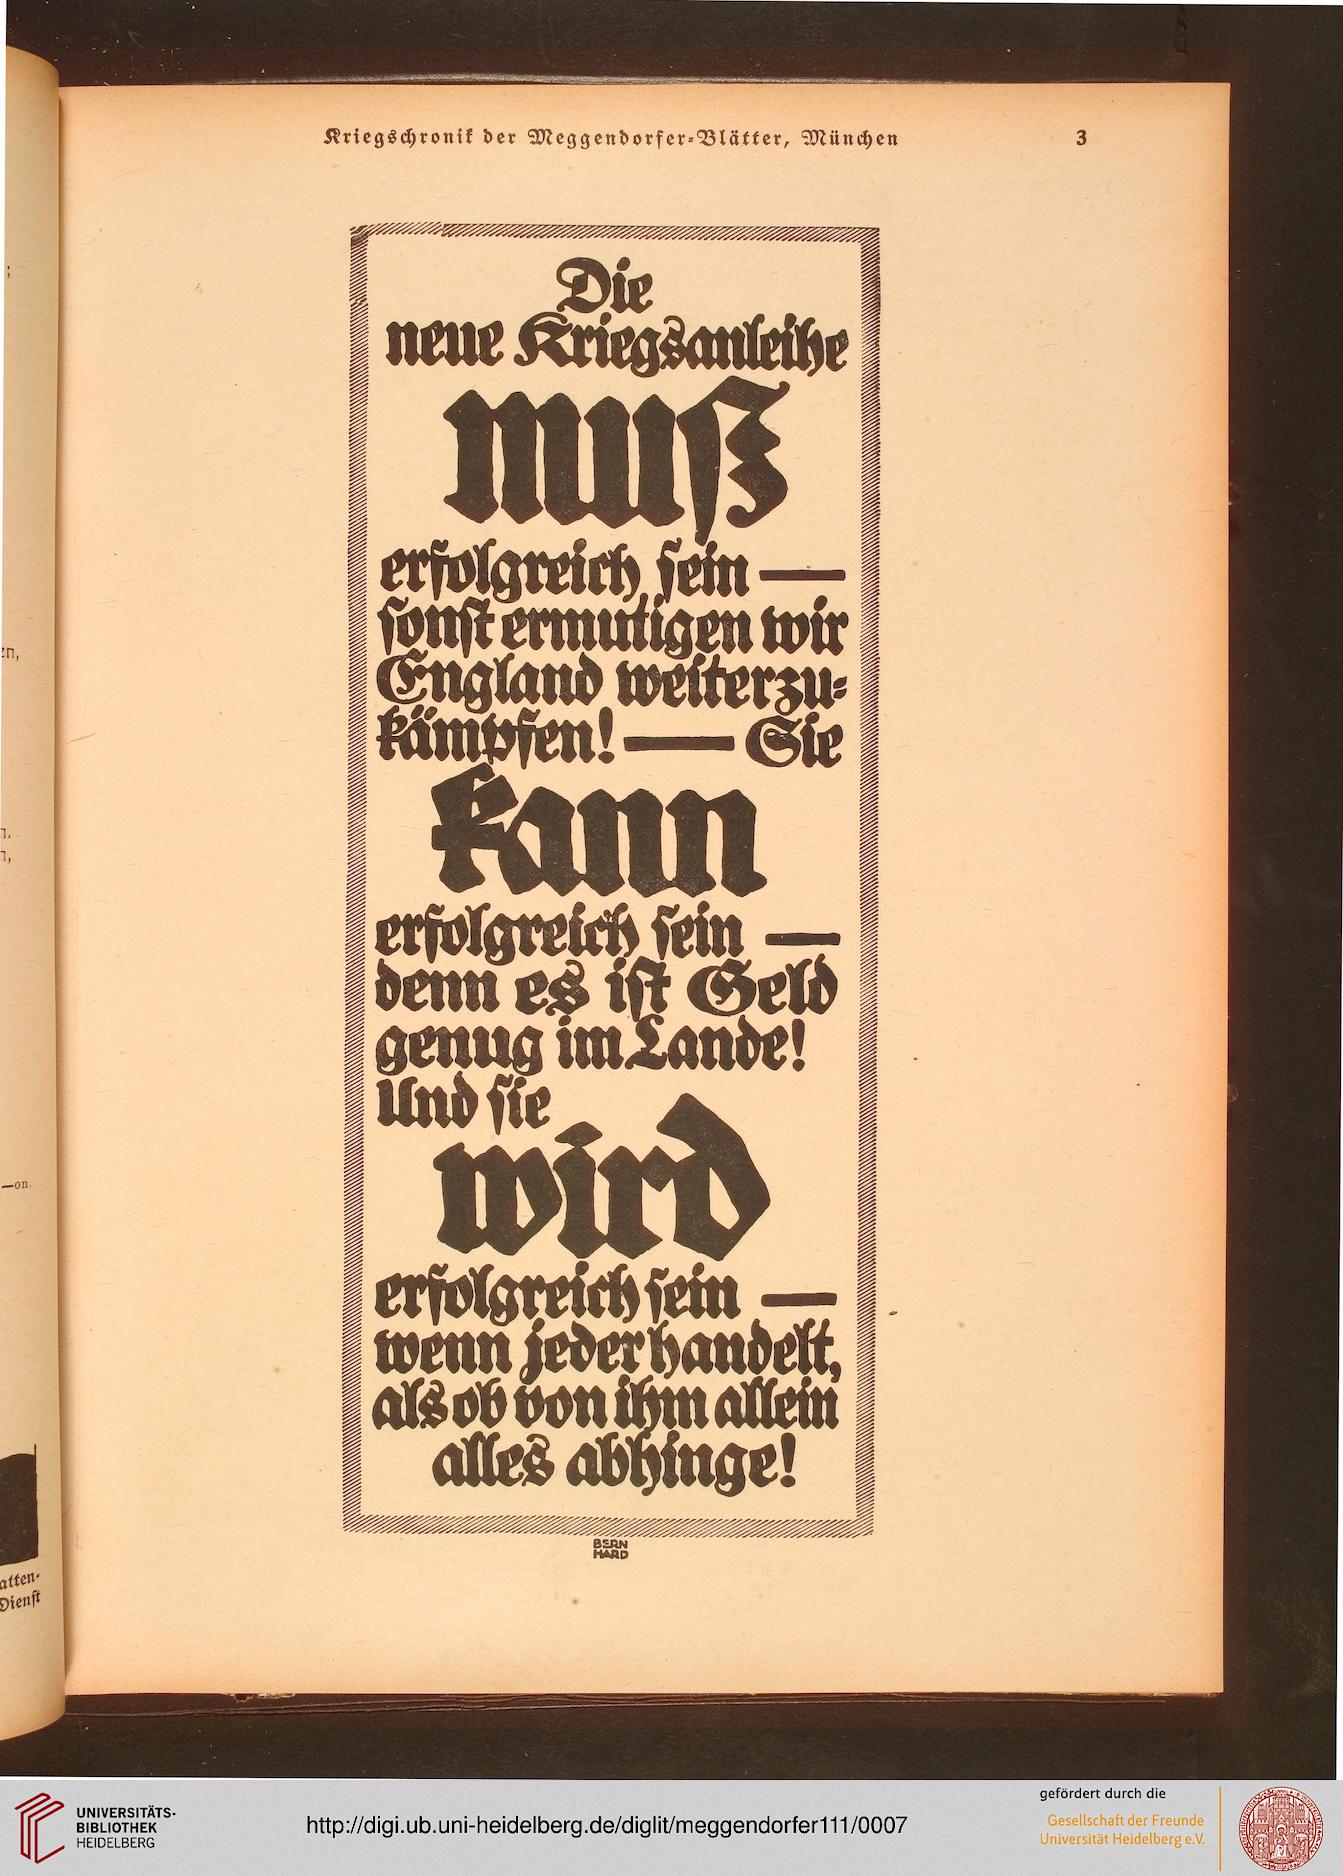 Kriegschronik der Meggendorfer-Blätter, München 3
Die
neue Kriegsanleihe
muß
erfolgreich sein —
sonst ermutigen wir
England weiterzu-
kämpfen! — Sie
kann
erfolgreich sein —
denn es ist Geld
genug im Lande!
Und sie
wird
erfolgreich sein —
wenn jeder handelt,
als ob von ihm allein
alles abhinge!
BERN
HARD
en,
—on.
atten-
Dienst
UNIVERSITÄTS-
BIBLIOTHEK
HEIDELBERG
http://digi.ub.uni-heidelberg.de/diglit/meggendorfer111/0007
gefördert durch die
Gesellschaft der Freunde
Universität Heidelberg e.V.